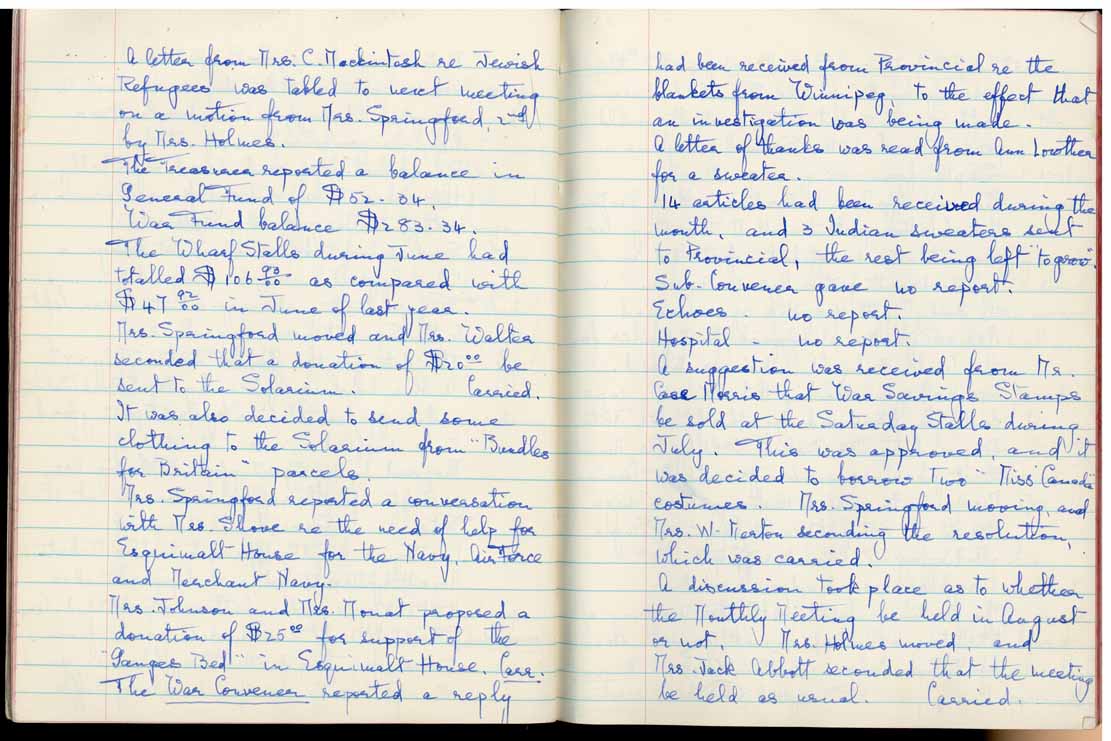 A letter from Mrs. C. Mackintosh re Jewish
Refugees was tabled to next meeting
on a motion from Mrs. Springford, 2nd
by Mrs. Holmes.
The Treasurer reported a balance in
General Fund of $52.34.
War Fund balance $283.34.
The Wharf Stalls during June had
totalled $106 90/00 as compared with
$47 92/00 in June of last year.
Mrs. Springford moved and Mrs. Walter
seconded that a donation of $20.00 be
sent to the Solarium. Carried.
It was also decided to send some
clothing to the Solarium from "Bundles
for Britain" parcels.
Mrs. Springford reported a conversation
with Mrs. Shove re the need of help for
Esquimalt House for the Navy, Air Force
and Merchant Navy.
Mrs. Johnson and Mrs. Mouat proposed a
donation of $25.00 for support of the
"Ganges Bed" in Esquimalt House. Carr.
The War Convener reported a reply
had been received from Provincial re the
blankets from Winnipeg, to the effect that
an investigation was being made.
A letter of thanks was read from Ann Lowther
for a sweater.
14 articles had been received during the
month, and 3 Indian sweaters sent
to Provincial, the rest being left "to grow".
Sub-Convener gave no report.
Echoes - no report.
Hospital - no report.
A suggestion was received from Mr.
Case Morris that War Savings Stamps
be sold at the Saturday Stalls during
July. This was approved, and it
was decided to borrow two "Miss Canada"
costumes. Mrs. Springford moving, and
Mrs. W. Norton seconding the resolution,
which was carried.
A discussion took place as to whether
the Monthly Meeting be held in August
or not. Mrs. Holmes moved, and
Mrs. Jack Abbott seconded that the meeting
be held as usual. Carried.